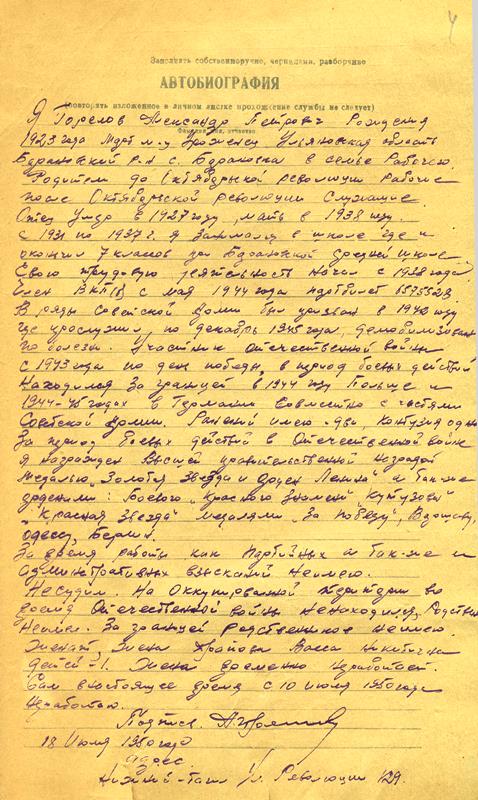 4
Заполнять собственноручно, чернилами, разборчиво
АВТОБИОГРАФИЯ
(повторять изложенное в личном листке прохождение службы не следует)
Я Горелов Александр Петрович Рождения
Фамилия, имя, отчество
1923 года Март м-ц, Уроженец Ульяновская область
Барановский р-н с. Барановка в семье Рабочего.
Родители до Октябрьской революции Рабочие
после Октябрьской революции Служащие.
Отец Умер в 1927 году, мать в 1938 году.
с 1931 по 1937 г. я Занимался в школе где и
окончил 7 классов при Барановской средней школе.
Свою трудовую деятельность начал с 1938 года.
Член ВКП(б) с мая 1944 года партбилет
В ряды Советской Армии был призван в 1940 году
где прослужил, по декабрь 1945 года, демобилизован
по болезни. Участник Отечественной войны
с 1943 года по день победы, в период боевых действий
Находился За границей в 1944 году Польше и
1944-45 годах в Германии Совместно с частями
Советской Армии. Ранений имею -два, Контузия одна
За период Боевых действий в Отечественной войне
я награжден Высшей правительственной Наградой
Медалью „Золотая Звезда и Орден Ленина" а так-же
орденами: Боевого „Красного Знамени" „Кутузова"
„Красная Звезда" медалями „За победу", Варшаву,
Одессу, Берлин.
За время работы как партийных а так-же и
административных взысканий неимею.
Несудим. На Оккупированной территории во
время Отечественной войны ненаходился, Родствен
Неимел. За границей Родственников неимею.
Женат, Жена Васса Никитична
детей -1. Жена временно неработает.
Сам внастоящее время с 10 июля 1950 года
неработаю.
Подпись.
18 Июля 1950 года
адрес.
Нижний-Тагил Ул. Революции 129.